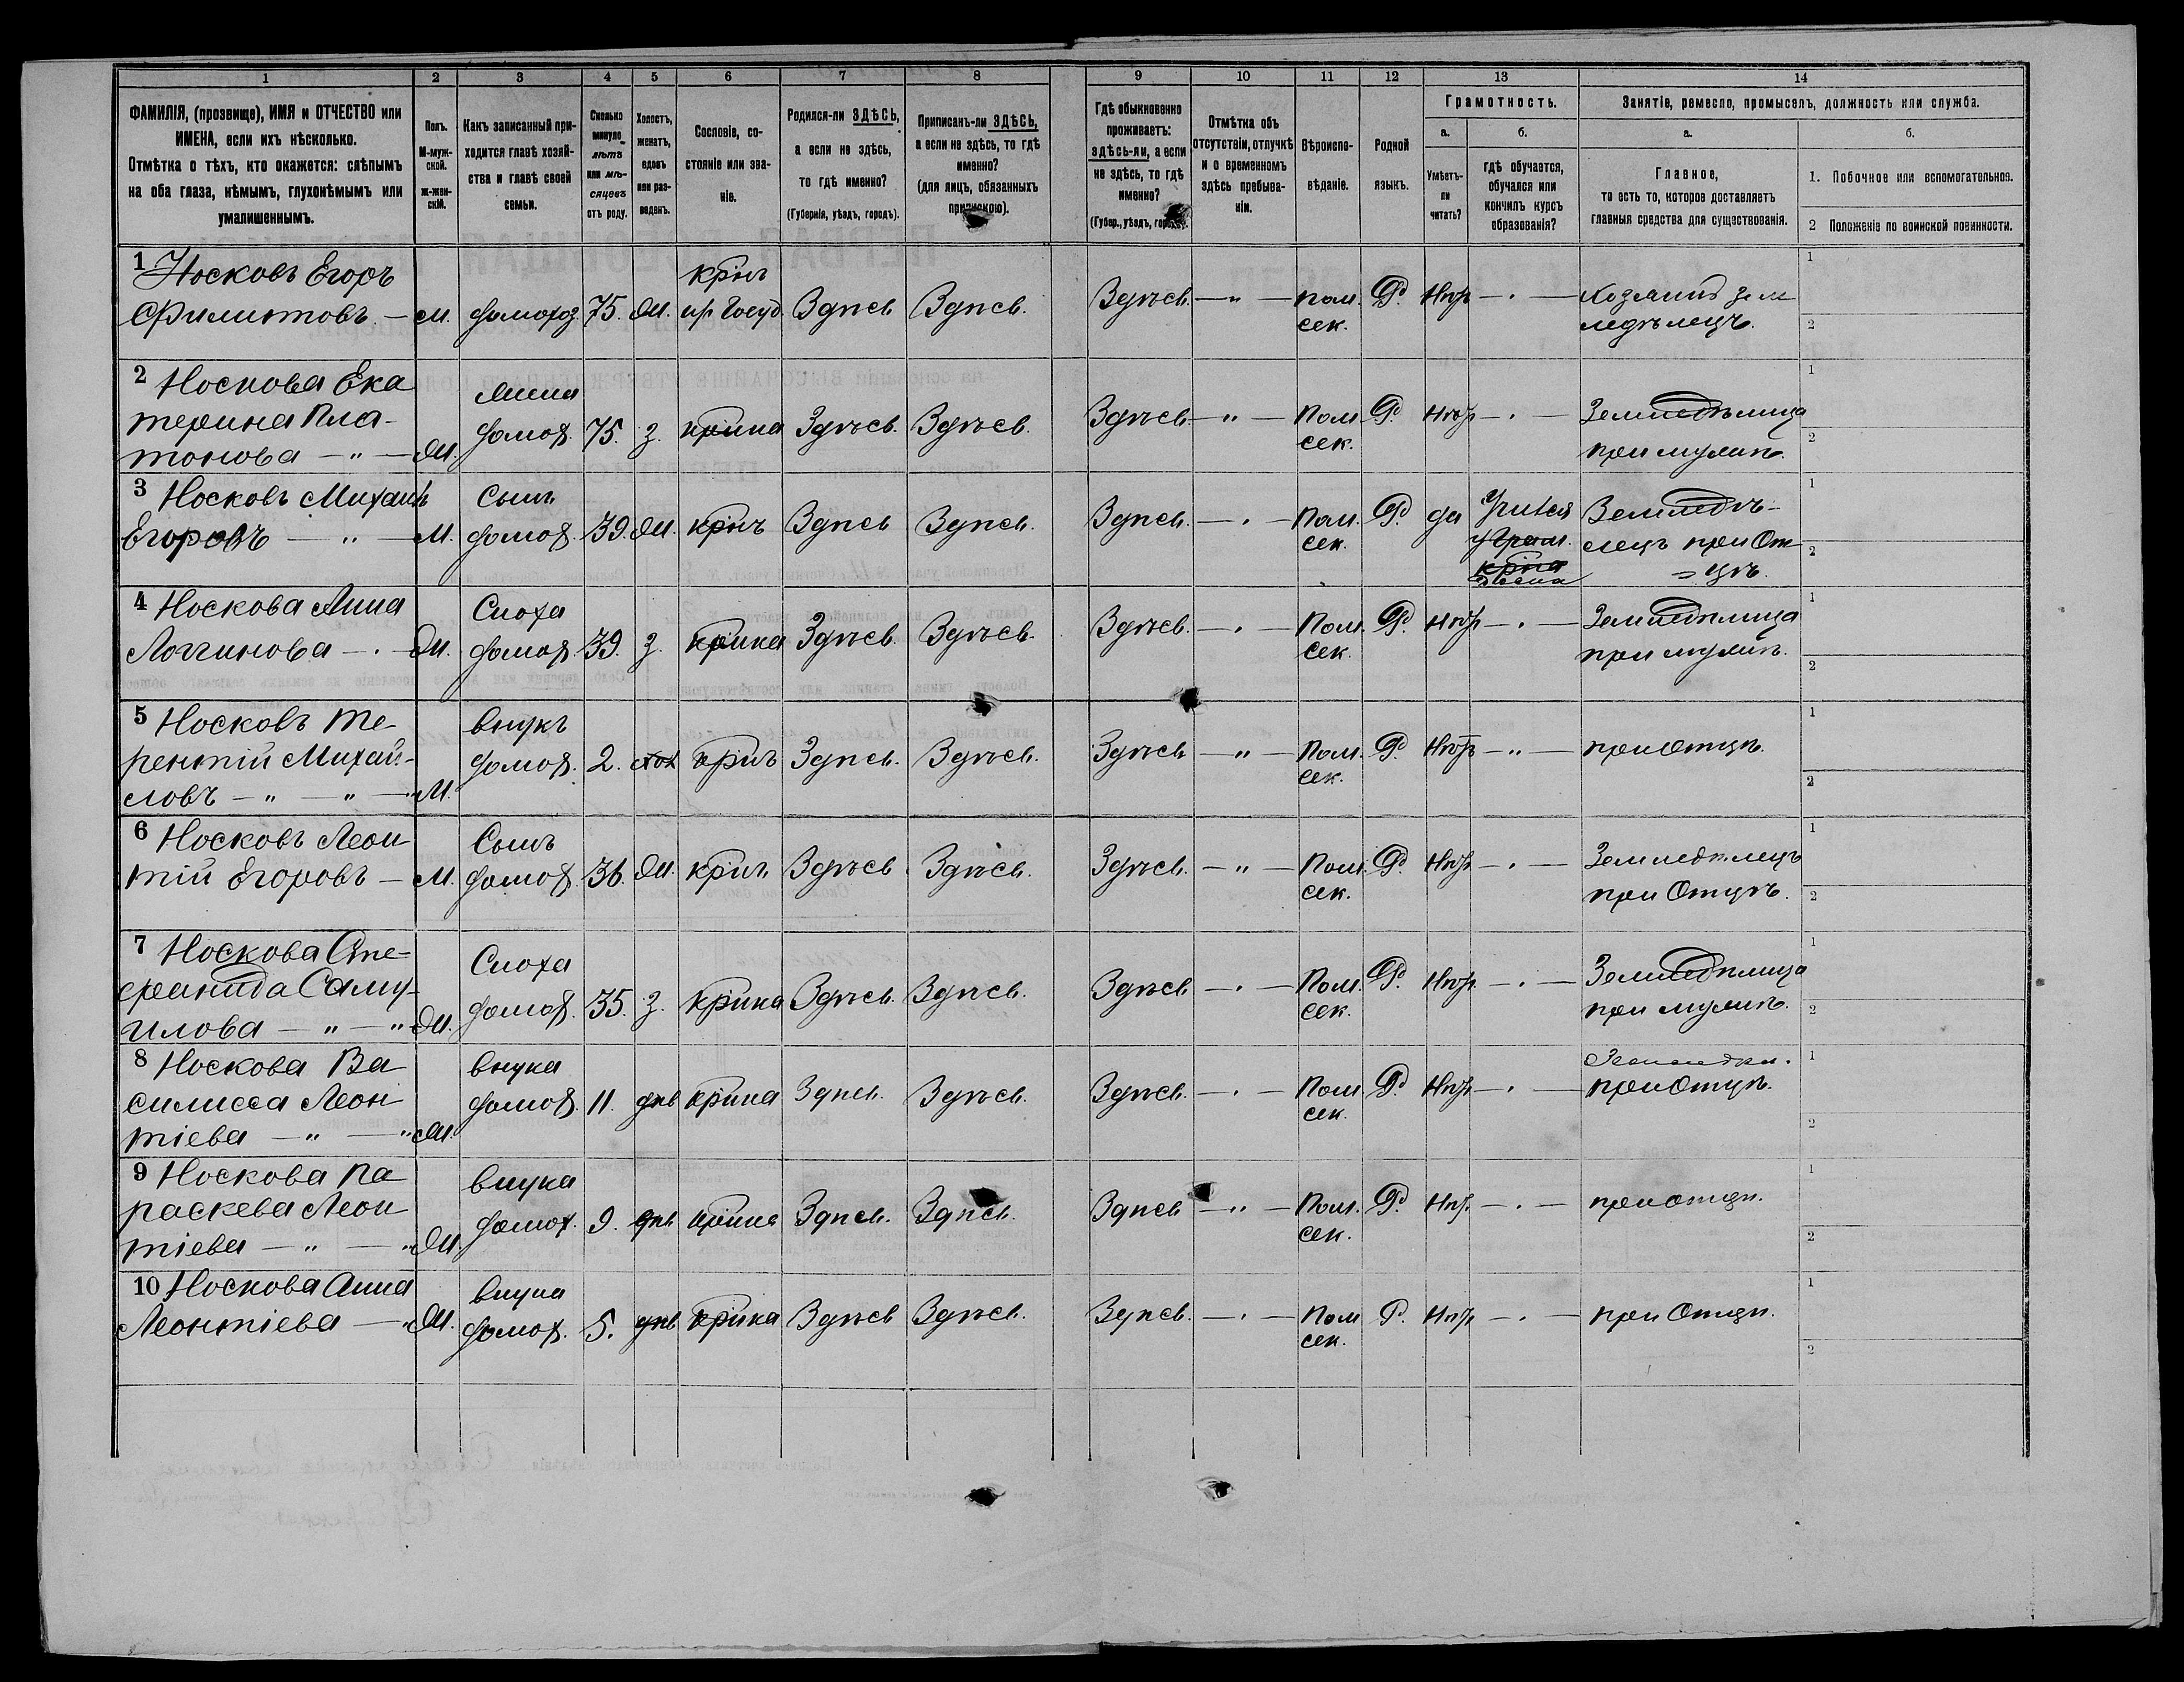 1 2 3 4 5 6 7 8 9 10 11 12 13 14
ФАМИЛІЯ, (прозвище), ИМЯ и ОТЧЕСТВО или
ИМЕНА, если ихъ нѣсколько.
Отмѣтка о тѣхъ, кто окажется: слѣпымъ
на оба глаза, нѣмымъ, глухонѣмымъ или
умалишеннымъ.
Полъ.
М-муж-
ской.
ж-жен-
скій.
Какъ записанный при-
ходится главѣ хозяй-
ства и главѣ своей
семьи.
Сколько
минуло
лѣтъ
или мѣ-
сяцевъ
отъ роду.
Холостъ,
женатъ,
вдовъ
или раз-
веденъ.
Сословіе, со-
стояніе или зва-
ніе.
Родился-ли ЗДѢСЬ,
а если не здѣсь,
то гдѣ именно?
(Губернія, уѣздъ, городъ).
Приписанъ-ли ЗДѢСЬ,
а если не здѣсь, то гдѣ
именно?
(для лицъ, обязанныхъ
припискою).
Гдѣ обыкновенно
проживаетъ:
здѣсь-ли, а если
не здѣсь, то гдѣ
именно?
(Губер., уѣздъ, городъ).
Отмѣтка объ
отсутствіи, отлучкѣ
и о временномъ
здѣсь пребыва-
ніи.
Вѣроиспо-
вѣданіе.
Родной
языкъ.
Грамотность.
а.
Умѣетъ-
ли
читать?
б.
гдѣ обучается,
обучался или
кончилъ курсъ
образованія?
Занятіе, ремесло, промыселъ, должность или служба.
а.
Главное,
то есть то, которое доставляетъ
главныя средства для существованія.
б.
1. Побочное или вспомогательное.
2 Положеніе по воинской повинности.
1 Носковъ Егоръ
Филиповъ — м. домохоз. 75. Ж. крнъ Здпсь Здпсь. Здѣсь — " — пом. сек. Р. Нтр — . — Хозяинъ зем
ледѣлецъ.
2 Носкова Ека
терина Пла-
тонова — " — Ж. домох. 75. З. кріика Здѣсь. Здѣсь. Здѣсь. — " — Пом. сек. Р. Нтр — . — Земледѣлица
при мужѣ.
3 Носковъ Михаилъ
Егоровъ — " — М. Сынъ домох. 39. Ж. крнъ Здпсь Здпсь. Здпсь. — . — Пом. сек. Р. да Земледѣ-
лецъ при От
=цѣ.
4 Носкова Анна
Логгинова — . — Ж. Сноха домох. 39. З. кріика Здѣсь. Здѣсь. Здѣсь. — . — Пом. сек. Р. Нтр — . — Земледѣлица
при мужѣ.
5 Носковъ Те-
рентій Михай-
ловъ — " — " — М. внукъ домох. 2. хол крнъ Здпсь. Здѣсь. Здѣсь — " — Пом. сек. Р. Нтр — " — при отцѣ.
6 Носковъ Леон
тій Егоровъ — М. Сынъ домох. 36. Ж. крнъ Здѣсь Здѣсь. Здѣсь. — " — Пом. сек. Р. Нтр — . — Земледѣлецъ
при Отцѣ.
7 Носкова Сте-
Саму-
илова — " — " Ж. Сноха домох. 35. З. кріика Здѣсь. Здѣсь. Здѣсь — . — Пом. сек. Р. Нтр — . — Земледѣлица
при мужѣ.
8 Носкова Ва
силисса Леон
тіева — " — " Ж. внука домох. 11. двв кріика Здпсь. Здѣсь. Здѣсь. — . — Пом. сек. Р. Нтр — . —
при отцѣ.
9 Носкова Па
раскева Леон
тіева — " — " Ж. внука домох. 9. двв кріика Здпсь. Здпсь. Здпсь — " — Пом. сек. Р. Нтр. — . — при отцѣ.
10 Носкова Анна
Леонтіева — " Ж. внука домох. 5. двв кріика Здѣсь Здѣсь. Здпсь. — . — Пом сек. Р. Нтр — . — при Отцѣ.